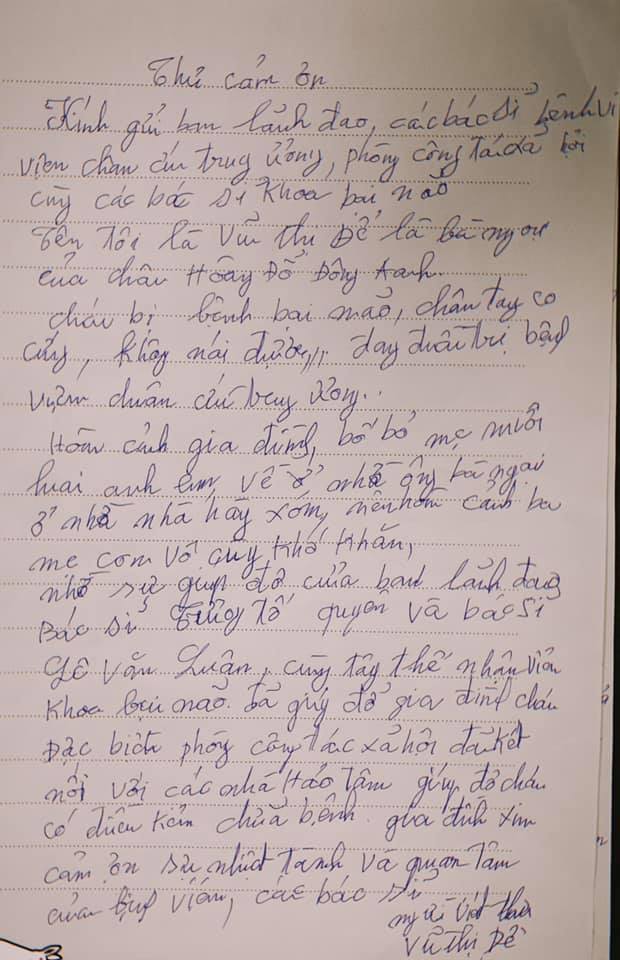 Thư cảm ơn
Kính gửi ban lãnh đao, các bác sĩ bệnh vi
viện châm cứu trung ương, phòng công tác xã hội
cùng các bác sĩ khoa bai não
Tên tôi là Vũ thị Dể là bà ngoại
của cháu Hoàng Đỗ Đông Anh.
cháu bị bệnh bai não, chân tay co
cứng, không nói được, đay điều trị bệnh
viện châm cứu trung ương..
Hoàn cảnh gia đình, bố bỏ mẹ nuôi
hai anh em về ở nhờ ông bà ngoại
ở nhờ nhà hàng xóm, nên hoàn cảnh ba
mẹ con vô cùng khó khăn,
nhờ sự giúp đỡ của ban lãnh đao
Bác sĩ quyền và bác sĩ
Lê Văn Luân, cùng tập thể nhân viên
khoa bại não. Đã giúp đỡ gia đình cháu
Đặc biệt phòng công tác xã hội đã kết
nối với các nhà Hảo Tâm giúp đỡ cháu
có điều kiện chữa bệnh. gia đình xin
cảm ơn sự nhiệt tành và quan tâm
của bệnh viện, các bác sĩ
người viết thư
Vũ thị Dể